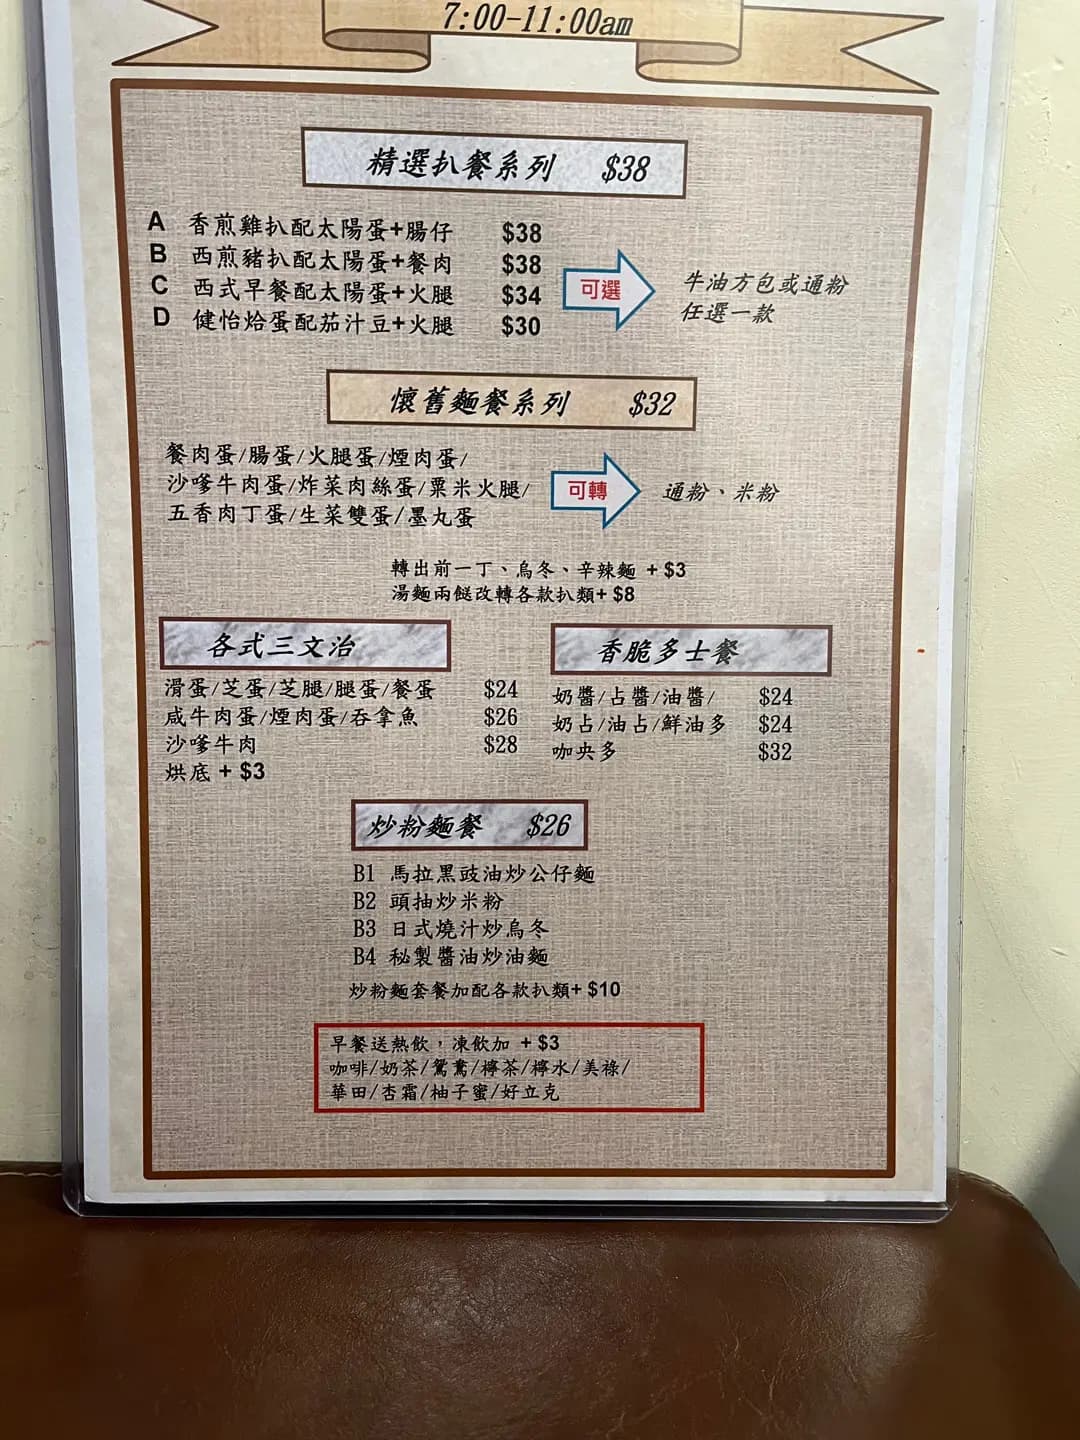 7:00-11:00am
精選扒餐系列 $38
A 香煎雞扒配太陽蛋+腸仔 $38
B 西煎豬扒配太陽蛋+餐肉 $38
C 西式早餐配太陽蛋+火腿 $34
D 健怡烚蛋配茄汁豆+火腿 $30
可選
牛油方包或通粉
任選一款
懷舊麵餐系列 $32
餐肉蛋/腸蛋/火腿蛋/煙肉蛋/
沙嗲牛肉蛋/炸菜肉絲蛋/粟米火腿/
五香肉丁蛋/生菜雙蛋/墨丸蛋
可轉
通粉、米粉
轉出前一丁、烏冬、辛辣麵 + $3
湯麵兩餸改轉各款扒類+ $8
各式三文治
滑蛋/芝蛋/芝腿/腿蛋/餐蛋 $24
咸牛肉蛋/煙肉蛋/吞拿魚 $26
沙嗲牛肉 $28
烘底 + $3
香脆多士餐
奶醬/占醬/油醬/ $24
奶占/油占/鮮油多 $24
咖央多 $32
炒粉麵餐 $26
B1 馬拉黑豉油炒公仔麵
B2 頭抽炒米粉
B3 日式燒汁炒烏冬
B4 秘製醬油炒油麵
炒粉麵套餐加配各款扒類+ $10
早餐送熱飲，凍飲加 + $3
咖啡/奶茶/鴛鴦/檸茶/檸水/美祿/
華田/杏霜/柚子蜜/好立克